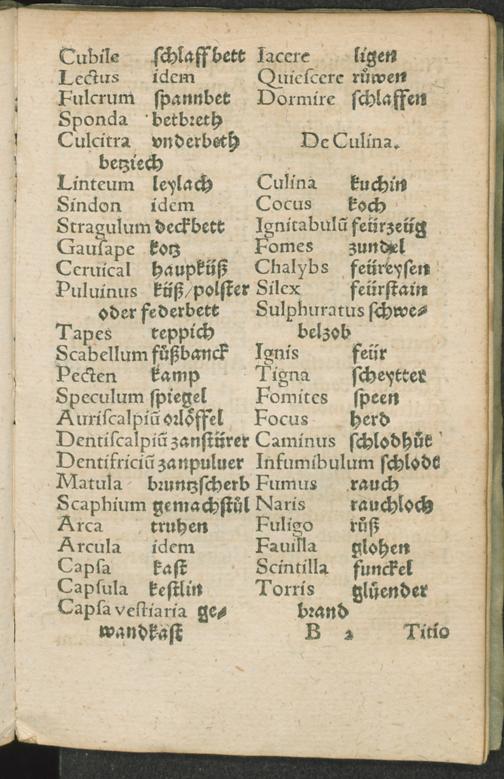 Cubile schlaffbett
Lectus idem
Fulcrum spannbet
Sponda betbreth
Culcitra vnderbeth
betziech
Linteum leylach
Sindon idem
Stragulum deckbett
Gausape kotz
Ceruical haupküß
Puluinus küß/polster
oder federbett
Tapes teppich
Scabellum fůßbanck
Pecten kamp
Speculum spiegel
Auriscalpiū orlöffel
Dentiscalpiū zanstürer
Dentifriciū zanpuluer
Matula bruntzscherb
Scaphium gemachstůl
Arca truhen
Arcula idem
Capsa kast
Capsula kestlin
Capsa vestiaria ge⸗
wandkast
Iacere ligen
Quiescere růwen
Dormire schlaffen
De Culina.
Culina kuchin
Cocus koch
Ignitabulū feürzeüg
Fomes zundel
Chalybs feüreysen
Silex feürstain
Sulphuratus schwe⸗
belzob
Ignis feür
Tigna scheytter
Fomites speen
Focus herd
Caminus schlodhůt
Infumibulum schlodt
Fumus rauch
Naris rauchloch
Fuligo růß
Fauilla glohen
Scintilla funckel
Torris glüender
brand
B 2 Titio